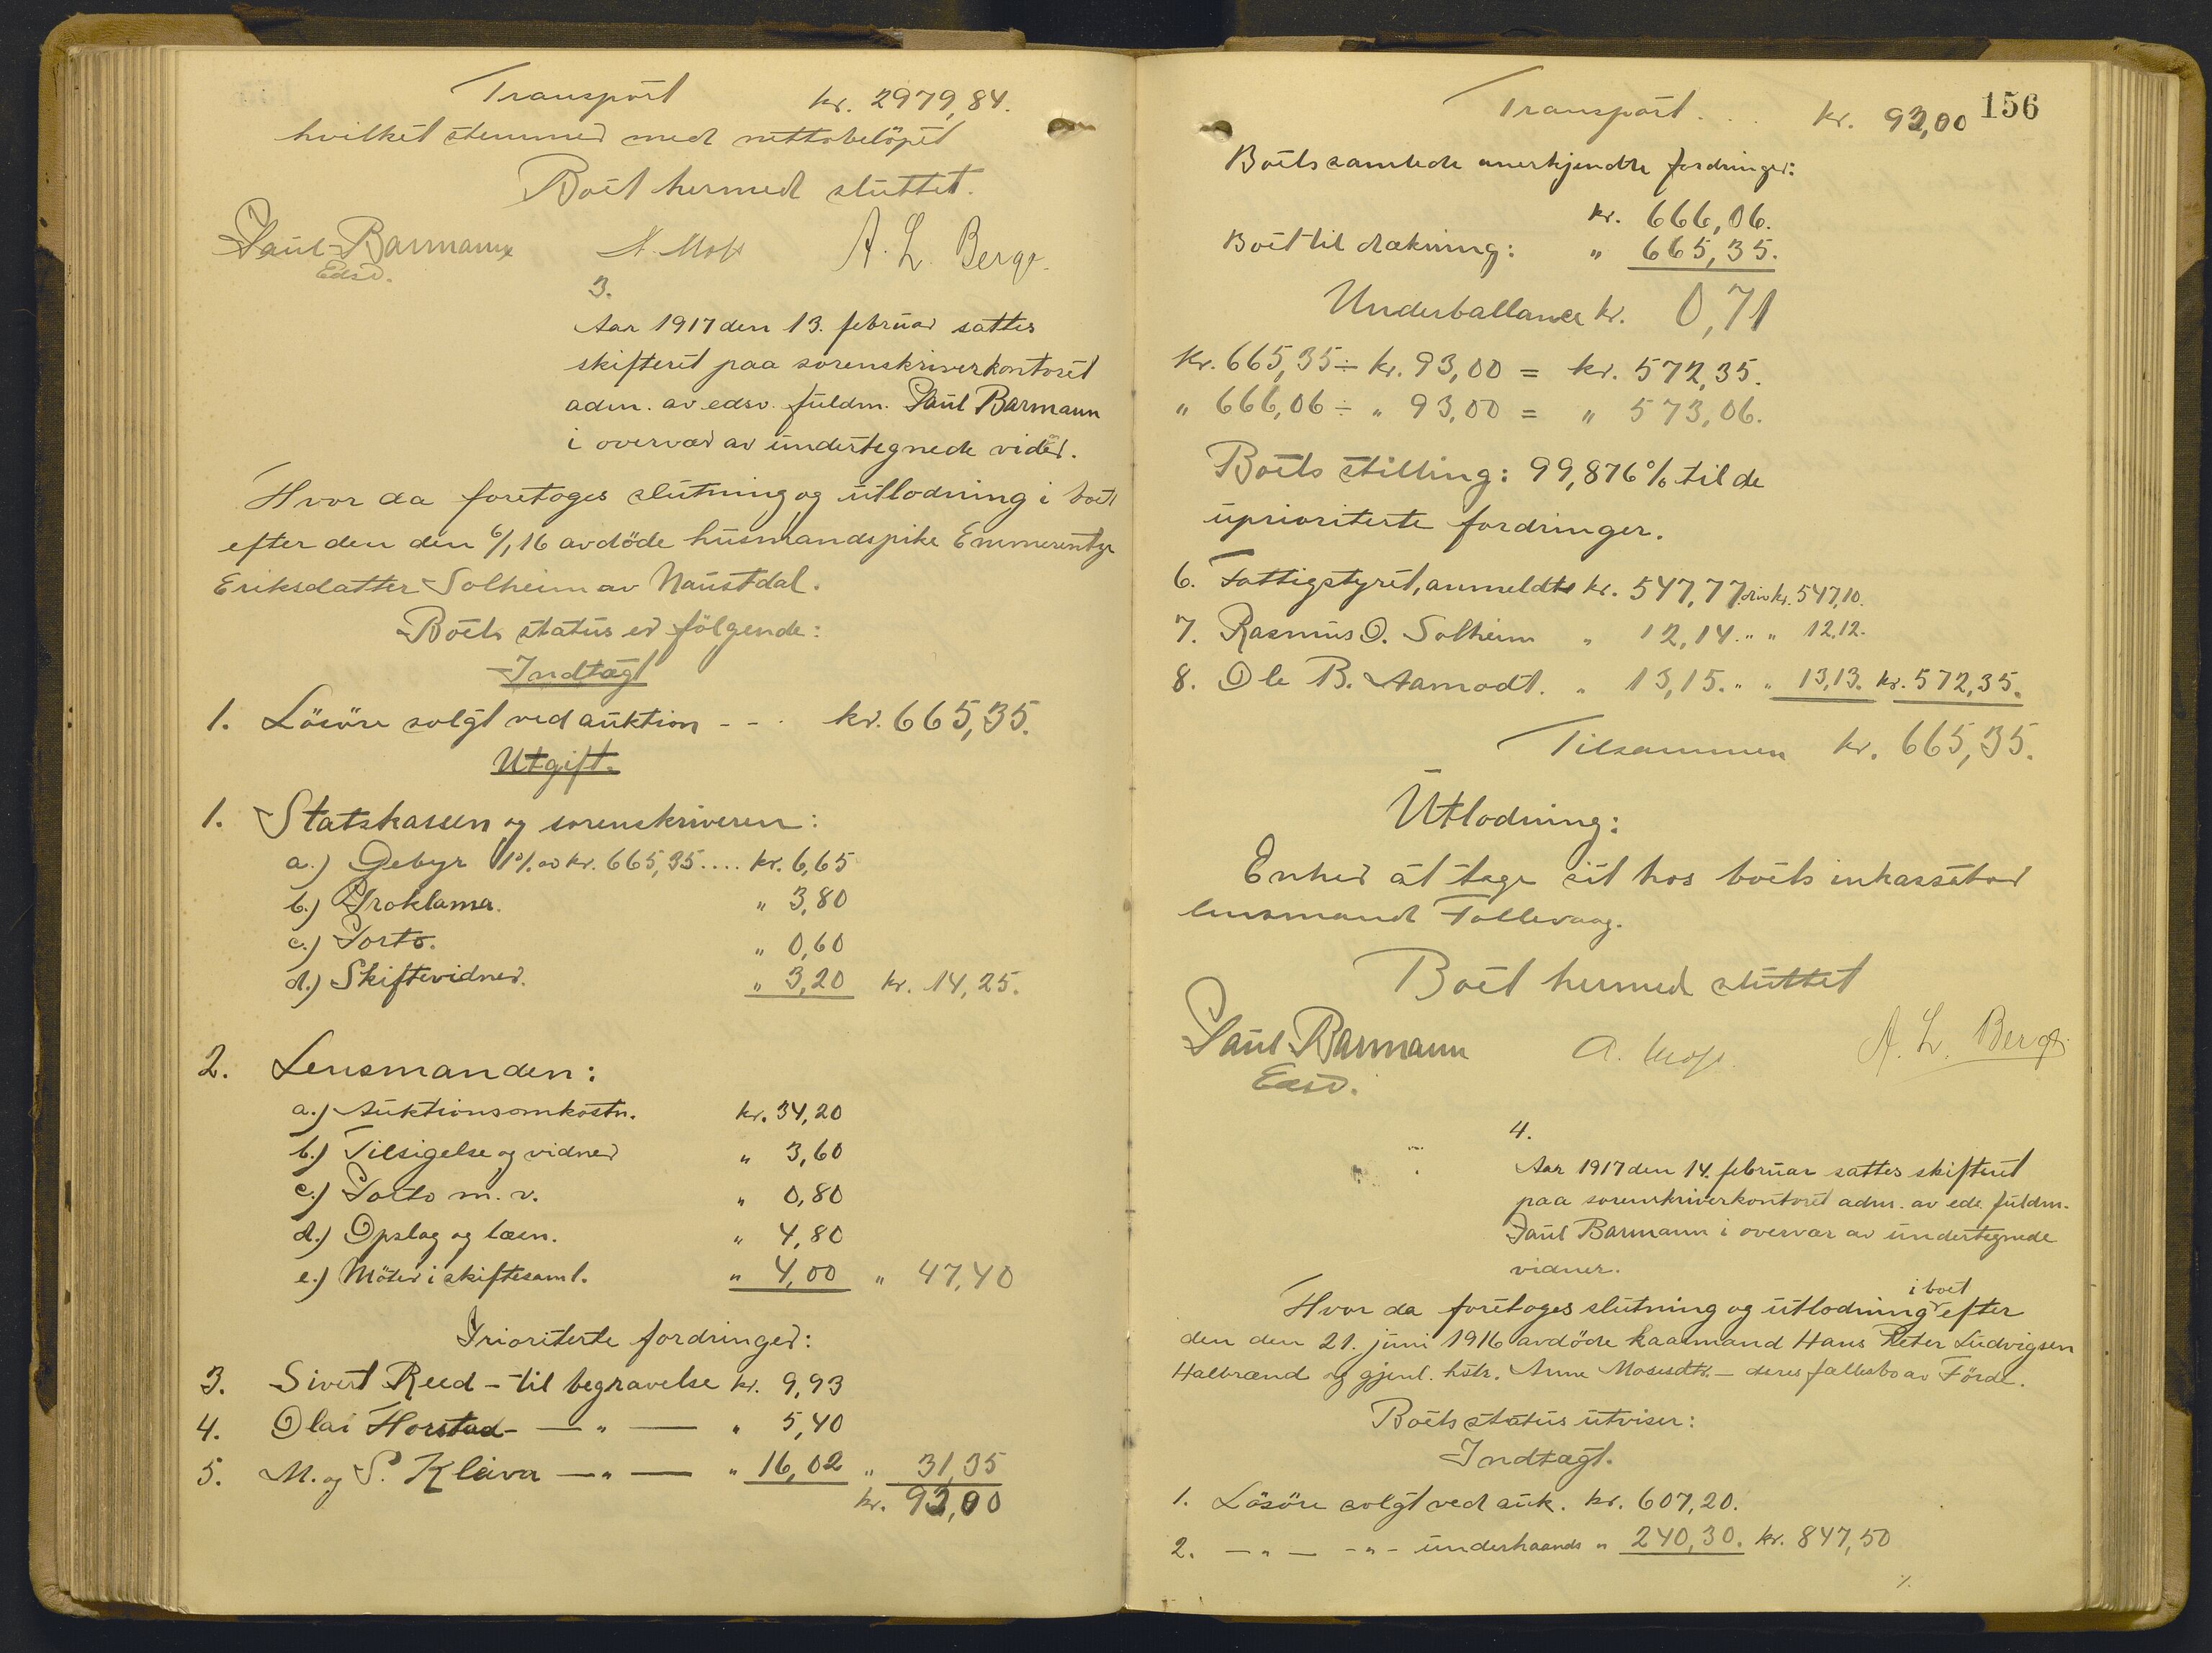 Transport kr. 2979,84.
hvilket stemmer med nettobeløpet
Boet hermed sluttet.
Paul Barmann A. Moss A. L. Berge.
Edsv.
3.
Aar 1917 den 13. februar sattes
skifteret paa sorenskriverkontoret
adm. av edsv. fuldm. Paul Barmann
i overvær av undertegnede vidner.
Hvor da foretoges slutning og utlodning i boet
efter den den 6/1 16 avdöde husmandspike Emmerentze
Eriksdatter Solheim av Naustdal.
Boets status er følgende:
Indtægt
1. Lösöre solgt ved auktion - - . kr. 665,35.
Utgift.
1. Statskassen og sorenskriveren:
a.) Gebyr 1% av kr. 665,35.... kr. 6,65
b.) Proklama. " 3,80
c.) Porto. " 0,60
d.) Skiftevidner. " 3,20 kr. 14,25.
2. Lensmanden:
a.) Auktionsomkostn. kr. 34,20
b.) Tilsigelse og vidner " 3,60
c.) Porto m. v. " 0,80
d.) Opslag og læsn. " 4,80
e.) Möter i skiftesaml. " 4,00 " 47,40
Prioriterte fordringer:
3. Sivert Reed - til begravelse kr. 9,93
4. Olai Horstad - — " — " 5,40
5. M. og P. Kleiva — " — " 16,02 " 31,35
kr. 93,00
156
Transport . . . kr. 93,00
Boets samlede anerkjendte fordringer:
kr. 666,06.
Boet til dækning: " 665,35.
Underballance kr. 0,71
Kr. 665,35 ÷ kr. 93,00 = kr. 572,35.
" 666,06 ÷ " 93,00 = " 573,06.
Boets stilling: 99,876% til de
uprioriterte fordringer.
6. Fattigstyret, anmeldte kr. 547,77. div kr. 547,10.
7. Rasmus O. Solheim " 12,14. " " 12,12.
8. Ole B. Aamodt. " 13,15. " " 13,13. kr. 572,35.
Tilsammen kr. 665,35.
Utlodning:
Enhver at tage sit hos boets inkassator
lensmand Tollevaag.
Boet hermed sluttet
Paul Barmann A. Moss. A. L. Berge.
Edsv.
4.
Aar 1917 den 14. februar sattes skifteret
paa sorenskriverkontoret adm. av eds. fuldm.
Paul Barmann i overvær av undertegnede
vidner.
i boet
Hvor da foretoges slutning og utlodning efter
den den 21. juni 1916 avdöde kaarmand Hans Peter Ludvigsen
Halbrænd og gjenl. hstr. Anne Mosesdtr. — deres fællesbo av Förde.
Boets status utviser:
Indtægt.
1. Lösöre solgt ved auk. kr. 607,20.
2. — " — - " - underhaands " 240,30. kr. 847,50
%.